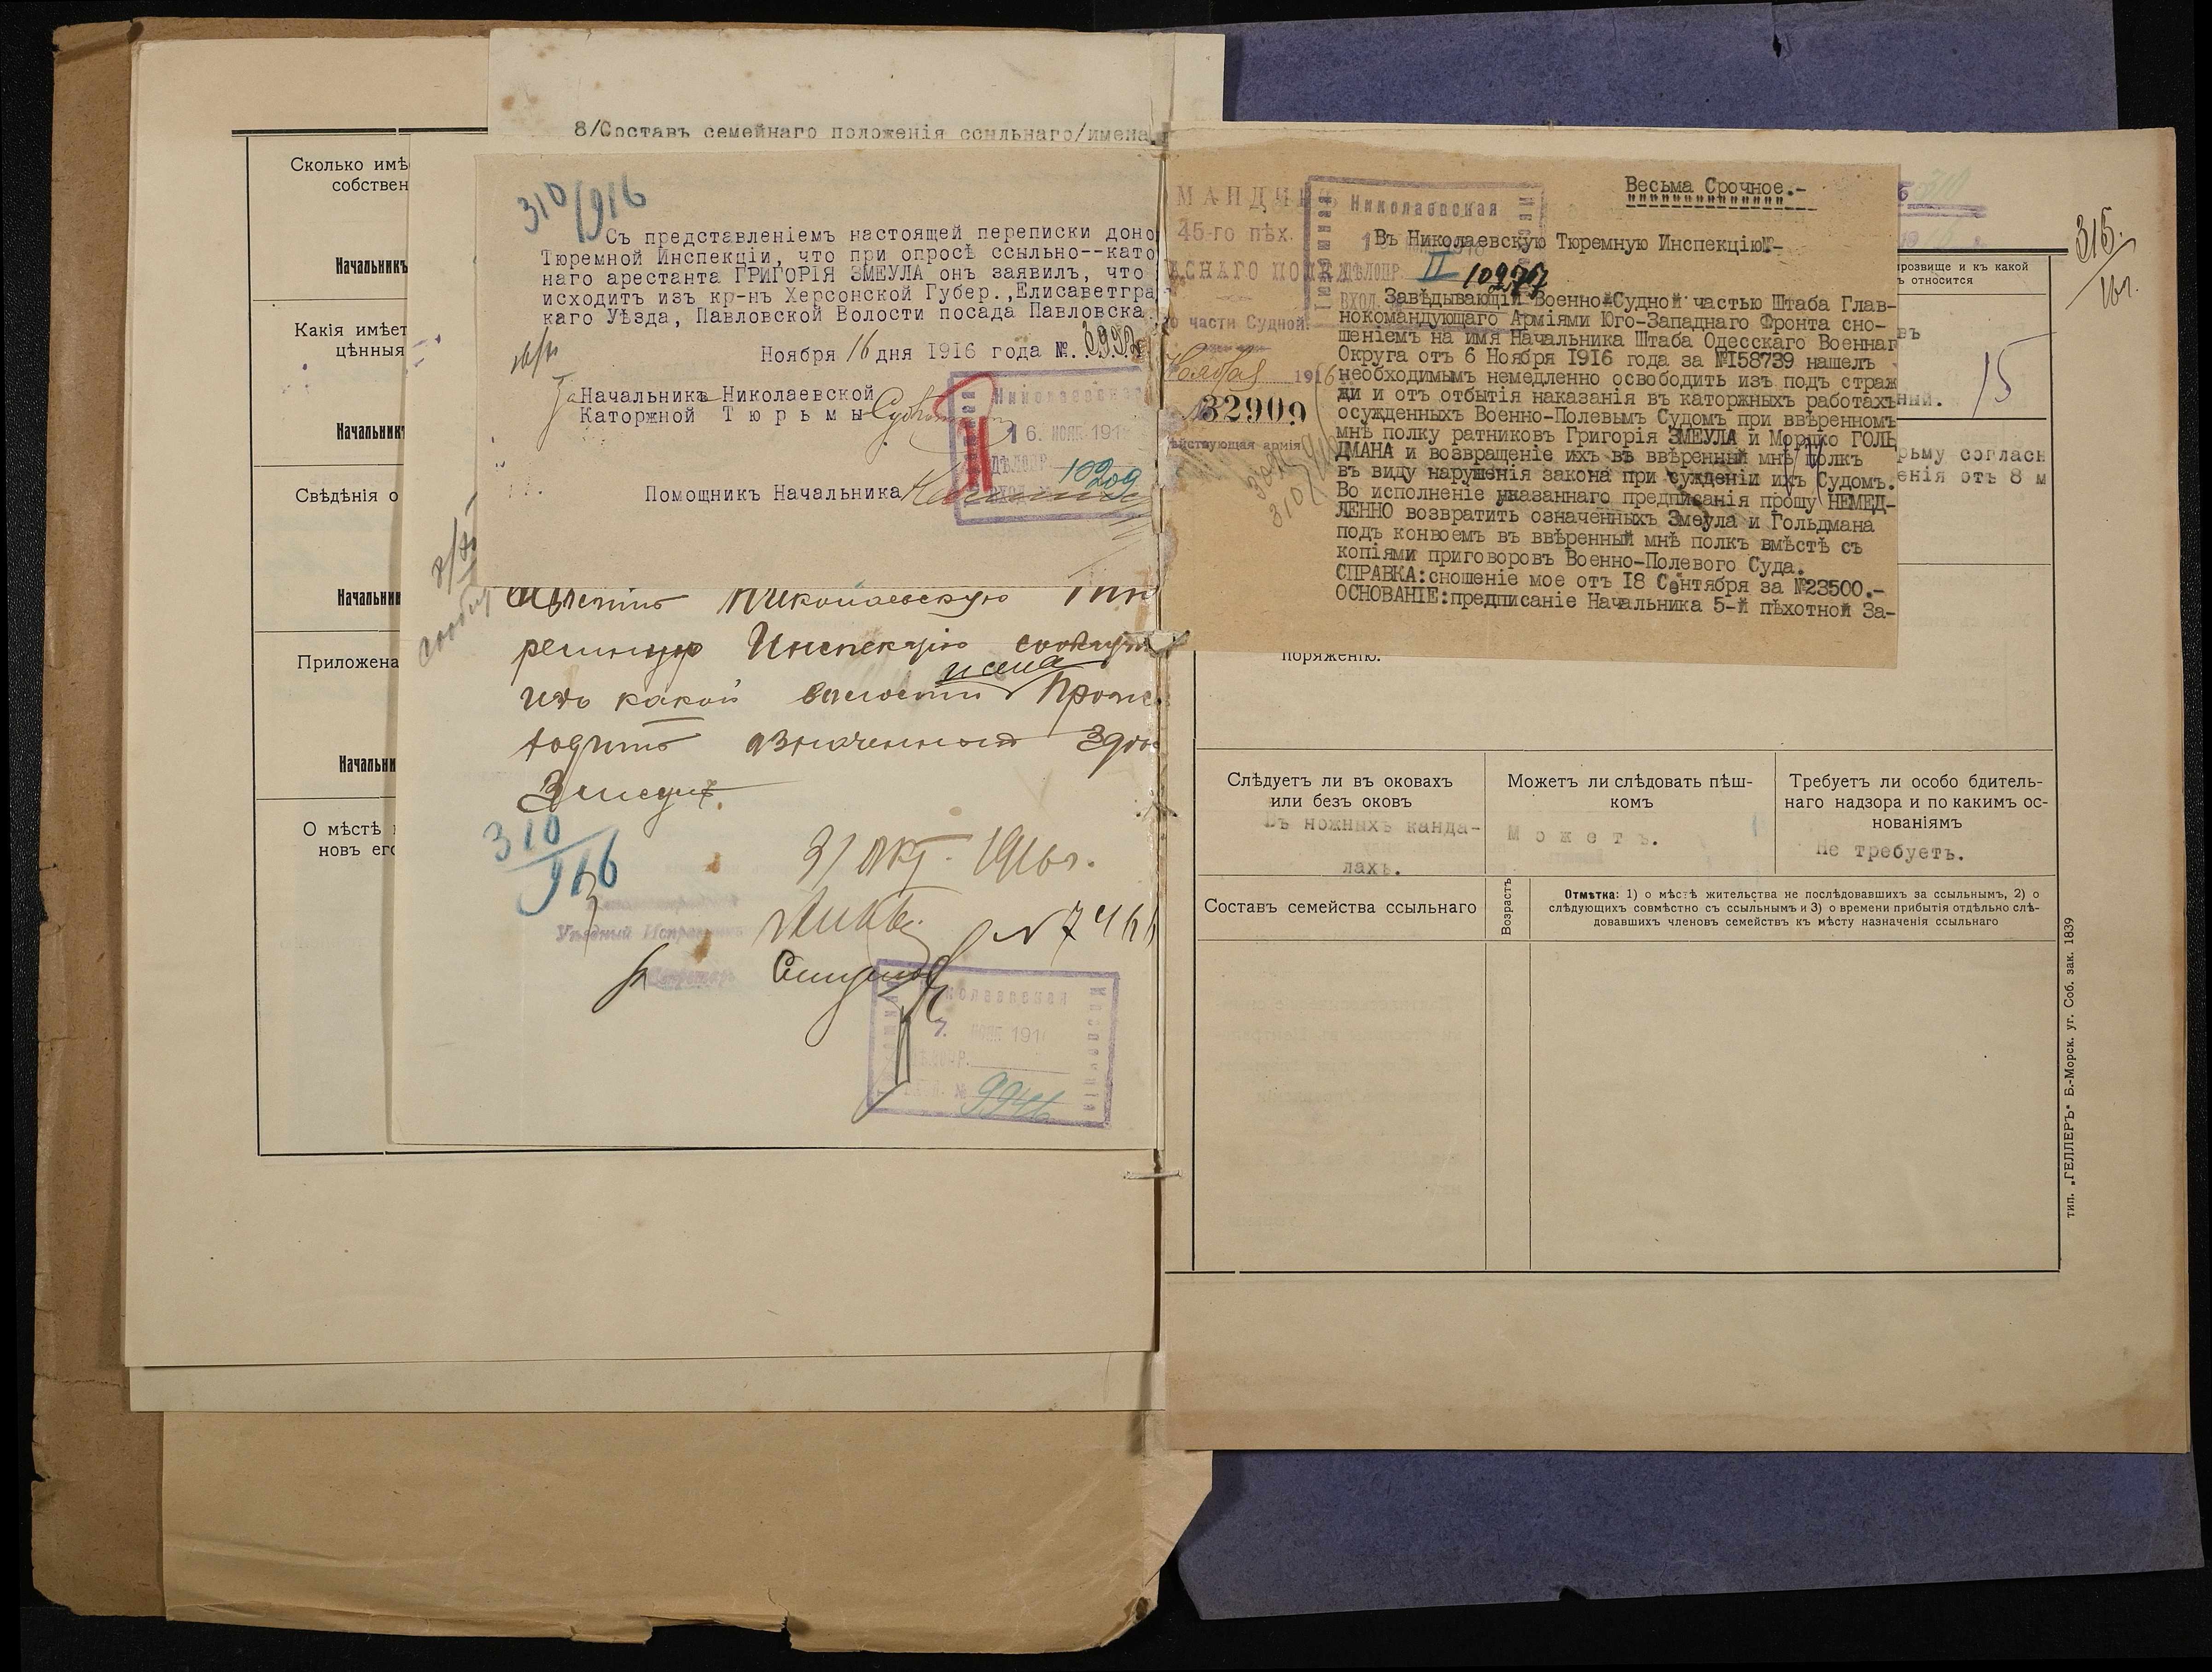 8/Составъ семейнаго положенія ссыльнаго/имена
Сколько имѣ
собствен
Начальникъ
Какія имѣет
цѣнныя
Начальникъ
Свѣдѣнія о
Начальни
Приложена
Начальни
О мѣстѣ
новъ его
310/916
Съ представленіемъ настоящей переписки доно
Тюремной Инспекціи, что при опросѣ ссыльно--като
наго арестанта ГРИГОРІЯ ЗМЕУЛА онъ заявилъ, что
исходитъ изъ кр-нъ Херсонской Губер.,Елисаветгра
каго Уѣзда, Павловской Волости посада Павловска.
Ноября 16 дня 1916 года №.
За Начальника Николаевской
Каторжной Тюрьмы
Помощникъ Начальника
Николаевская
16. НОЯБ 191
ДѢЛОПР.
ВХОД.
10209
Николаевскую Тю
ремную Инспекцію сообщить
и села
изъ какой волости Проис
ходитъ означенный
Змеулъ.
310/916
31 окт. 1916 г.
Уѣздный Исправникъ
Секретарь
Николаевская
7. НОЯБ 191
№ 9946
МАНДИР
45-го пѣх.
АСНАГО ПОЛКА
о части Судной.
Ноября 1916
№ 32909
ѣйствующая армія
Николаевская
ДѢЛОПР. II
ВХОД. № 10277
Весьма Срочное.-
Въ Николаевскую Тюремную Инспекцію.-
Завѣдывающій Военно-Судной частью Штаба Глав-
нокомандующаго Арміями Юго-Западнаго Фронта сно-
шеніемъ на имя Начальника Штаба Одесскаго Военнаг
Округа отъ 6 Ноября 1916 года за №158739 нашелъ
необходимымъ немедленно освободить изъ подъ страж
жи и отъ отбытія наказанія въ каторжныхъ работахъ
осужденныхъ Военно-Полевымъ Судомъ при ввѣренномъ
мнѣ полку ратниковъ Григорія ЗМЕУЛА и Мордко ГОЛЬ
ДМАНА и возвращеніе ихъ въ ввѣренный мнѣ полкъ
въ виду нарушенія закона при сужденіи ихъ Судомъ.
Во исполненіе указаннаго предписанія прошу НЕМЕД-
ЛЕННО возвратить означенныхъ Змеула и Гольдмана
подъ конвоемъ въ ввѣренный мнѣ полкъ вмѣстѣ съ
копіями приговоровъ Военно-Полевого Суда.
СПРАВКА:сношеніе мое отъ 18 Сентября за №23500.-
ОСНОВАНІЕ:предписаніе Начальника 5-й пѣхотной За-
315.
16г.
прозвище и къ какой
ъ относится
въ
ный.
15
рьму согласн
енія отъ 8 м
поряженію.
Слѣдуетъ ли въ оковахъ
или безъ оковъ
Въ ножныхъ канда-
лахъ.
Можетъ ли слѣдовать пѣш-
комъ
Можетъ.
Требуетъ ли особо бдитель-
наго надзора и по какимъ ос-
нованіямъ
Не требуетъ.
Составъ семейства ссыльнаго
Возрастъ
Отмѣтка: 1) о мѣстѣ жительства не послѣдовавшихъ за ссыльнымъ, 2) о
слѣдующихъ совмѣстно съ ссыльнымъ и 3) о времени прибытія отдѣльно слѣ-
довавшихъ членовъ семействъ къ мѣсту назначенія ссыльнаго
тип. „ГЕЛЛЕРЪ" Б.-Морск. уг. Соб. зак. 1839